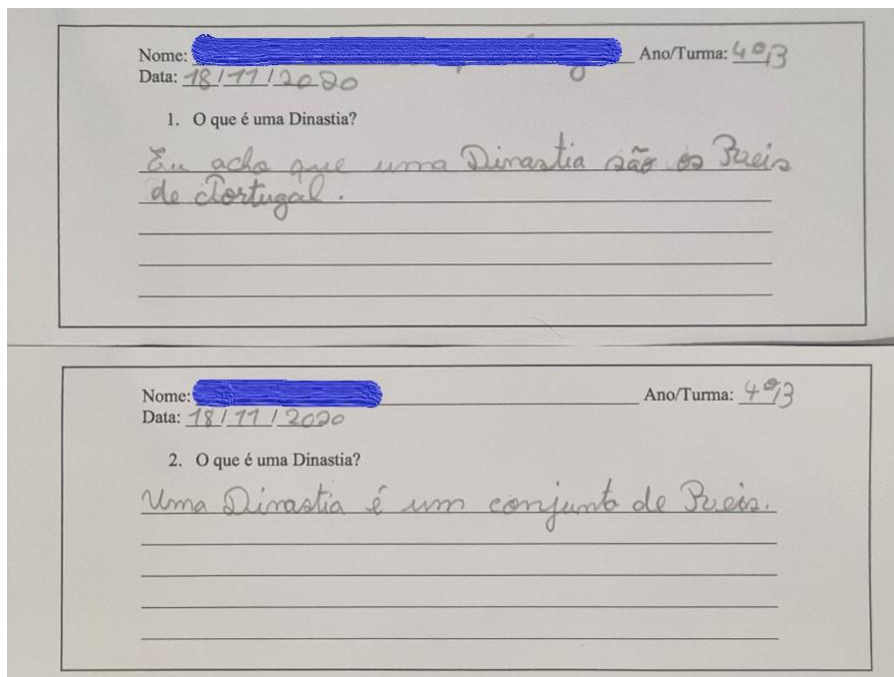 Nome: Ano/Turma: 4ºB
Data: 18/11/2020
1. O que é uma Dinastia?
Eu acho que uma Dinastia são os Reis
de Portugal.
Nome: Ano/Turma: 4ºB
Data: 18/11/2020
2. O que é uma Dinastia?
Uma Dinastia é um conjunto de Reis.